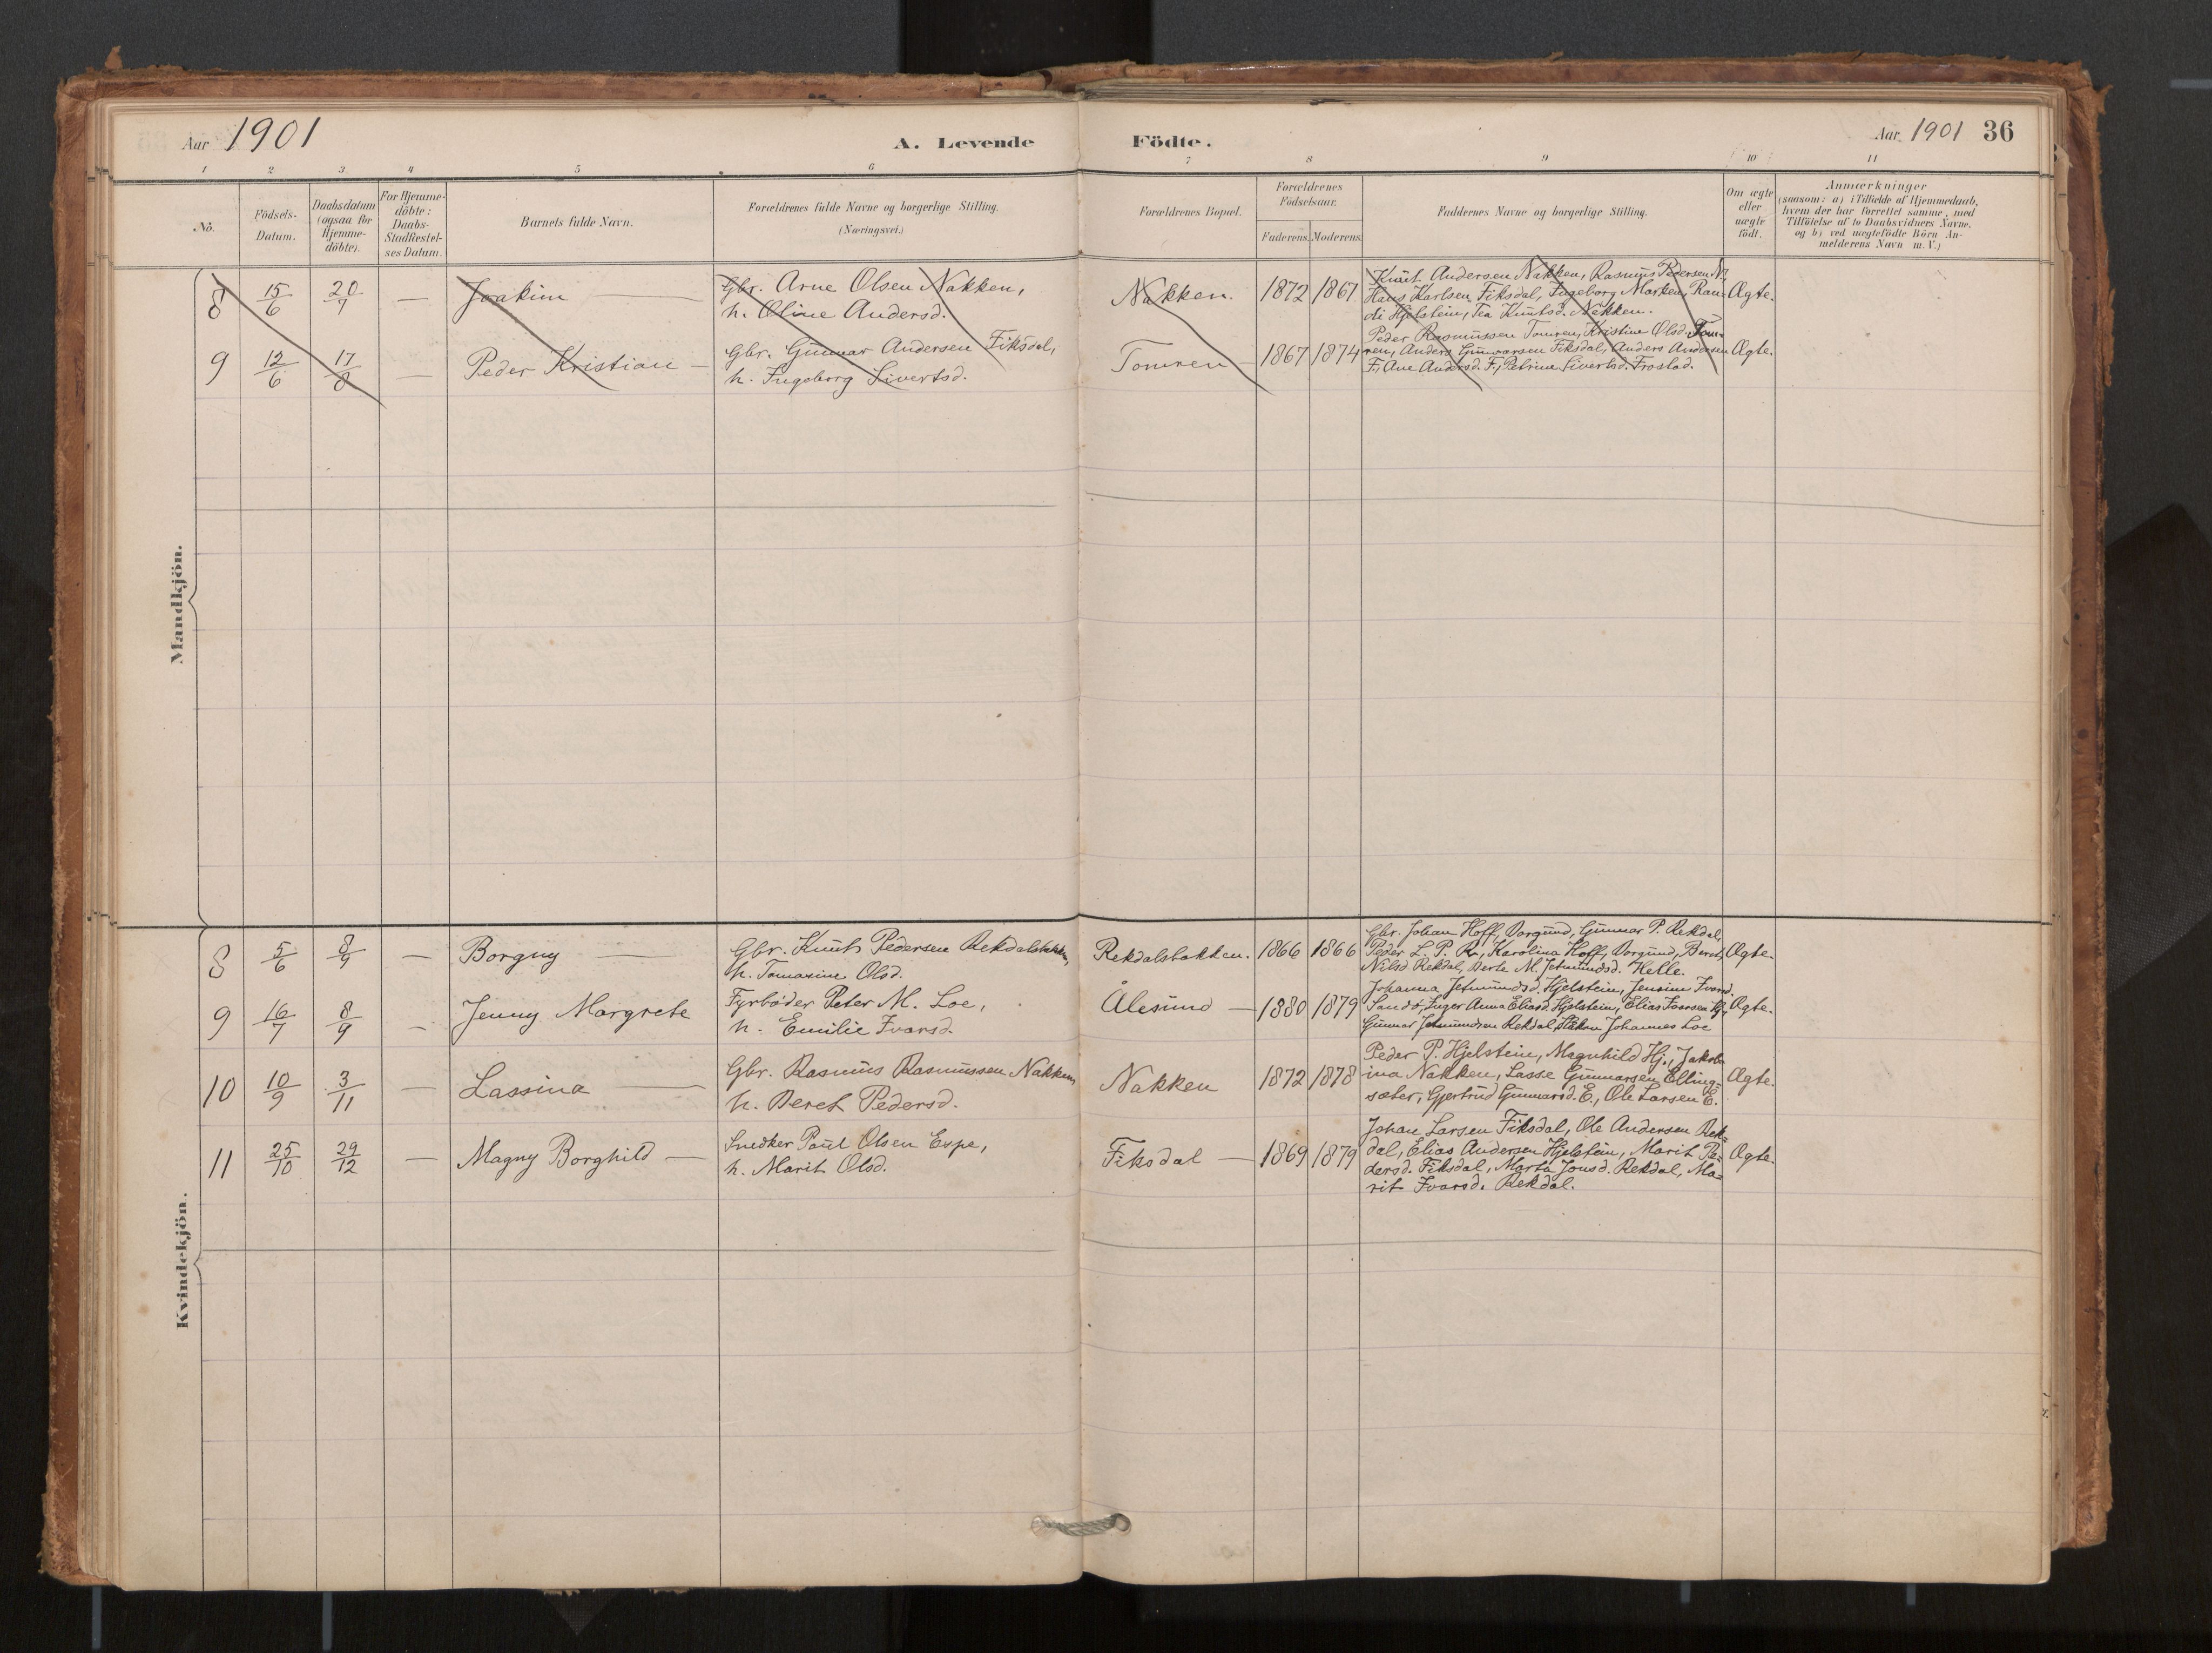 Aar 1901
A. Levende
Födte.
Aar 1901 36
1 2 3 4 5 6 7 8 9 10 11
No.
Födsels-
Datum.
Daabsdatum
(ogsaa for
Hjemme-
döbte).
For Hjemme-
döbte:
Daabs-
Stadfæstel-
ses Datum.
Barnets fulde Navn.
Forældrenes fulde Navne og borgerlige Stilling.
(Næringsvei.)
Forældrenes Bopæl.
Forældrenes
Födselsaar.
Faderens. Moderens.
Faddernes Navne og borgerlige Stilling.
Om ægte
eller
uægte
født.
Anmærkninger
(saasom: a) i Tilfælde af Hjemmedaab,
hvem der har forrettet samme, med
Tilföielse af to Daabsvidners Navne,
og b) ved uægtefödte Börn An-
melderens Navn m. V.)
Mandkjön.
8 15/6 20/7 — Joakim —
Gbr. Arne Olsen Nakken,
h. Oline Andersd.
Nakken. 1872 1867
Knut Andersen Nakken, Rasmus Pedersen N.
Hans Karlsen Fiksdal, Ingeborg Marken, Ran-
di Hjelstein, Tea Knutsd. Nakken.
Ægte.
9 12/6 17/8 — Peder Kristian —
Gbr. Gunnar Andersen Fiksdal,
h. Ingeborg Sivertsd.
Tomren — 1867 1874
Peder Rasmussen Tomren, Kristine Olsd. Tom-
ren, Anders Gunnarsen Fiksdal, Anders Andersen
F., Ane Andersd. F., Petrine Sivertsd. Frostad.
Ægte.
Kvindekjön.
8 5/6 8/9 — Borgny —
Gbr. Knut Pedersen Rekdalsbakken,
h. Tomasine Olsd.
Rekdalsbakken. 1866 1866
Gbr. Johan Hoff, Vorgund, Gunnar P. Rekdal,
Peder L. P. R., Karolina Hoff, Vorgund, Beret
Nilsd Rekdal, Berte M. Jetmundsd. Helle.
Ægte.
9 16/7 8/9 — Jenny Margrete
Fyrböder Peter M. Loe,
h. Emilie Ivarsd.
Ålesund — 1880 1879
Johanna Jetmundsd. Hjelstein, Jensine Ivarsd.
Sandö, Inger Anna Eliasd. Hjelstein, Elias Ivarsen Hj.,
Gunnar Jetmundsen Rekdal, Håkon Johannes Loe
Ægte.
10 10/9 3/11 — Lassina —
Gbr. Rasmus Rasmussen Nakken,
h. Beret Pedersd.
Nakken 1872 1878
Peder P. Hjelstein, Magnhild Hj., Jakob-
ina Nakken, Lasse Gunnarsen Elling-
sæter, Gjertrud Gunnarsd. E., Ole Larsen E.
Ægte.
11 25/10 29/12 — Magny Borghild —
Snedker Paul Olsen Espe,
h. Marit Olsd.
Fiksdal — 1869 1879
Johan Larsen Fiksdal, Ole Andersen Rek-
dal, Elias Andersen Hjelstein, Marit Pe-
dersd. Fiksdal, Marta Jonsd. Rekdal, Ma-
rit Ivarsd. Rekdal.
Ægte.